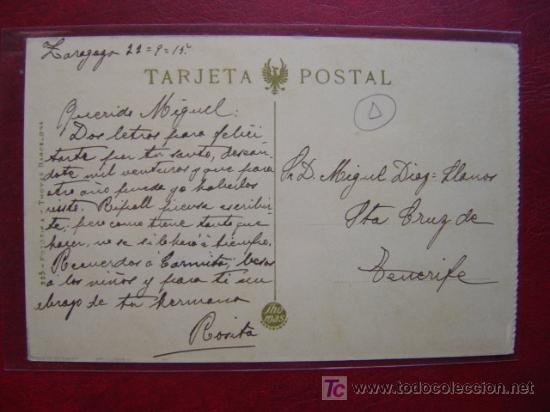 Zaragoza 22=9=15.
TARJETA POSTAL
Querido Miguel:
Dos letras para felici
tarte por tu santo, desean
dote mil venturas y que para
otro año pueda yo haberlos
visto. Ripoll piensa escribir
te, pero como tiene tanto que
hacer, no se si lo hará á tiempo.
Recuerdos á Carmita, besos
á los niños y para ti un
abrazo de tu hermana
Rosita
Sr. D. Miguel Diaz=Llanos
Sta Cruz de
Tenerife
THOMAS BARCELONA
tho
mas
todocoleccion
www.todocoleccion.net